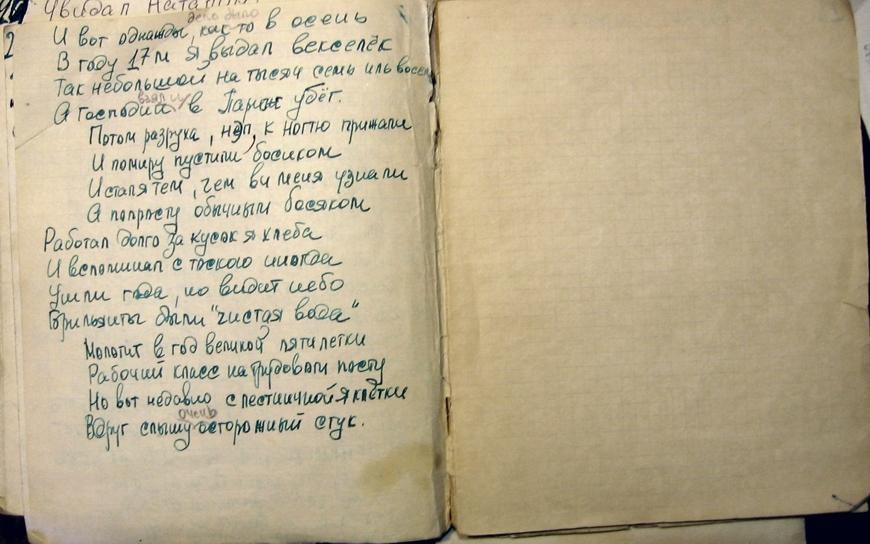 Увидал Наташ
дело было
И вот однажды, как то в осень
В году 17м я выдал векселёк
Так небольшой, на тысяч семь иль восем
взял и
А господин в Париж убёг.
Потом разруха, нэп, к ногтю прижали
И помиру пустили босиком
И стал я тем, чем вы меня узнали
А попросту обычным босяком
Работал долго за кусок я хлеба
И вспоминал с тоскою иногда
Ушли года, но видит небо
Брильянты были "чистая вода"
Молотит в год великой пятилетки
Рабочий класс на трудовом посту
Но вот недавно с лестничной я клетки
очень
Вдруг слышу осторожный стук.